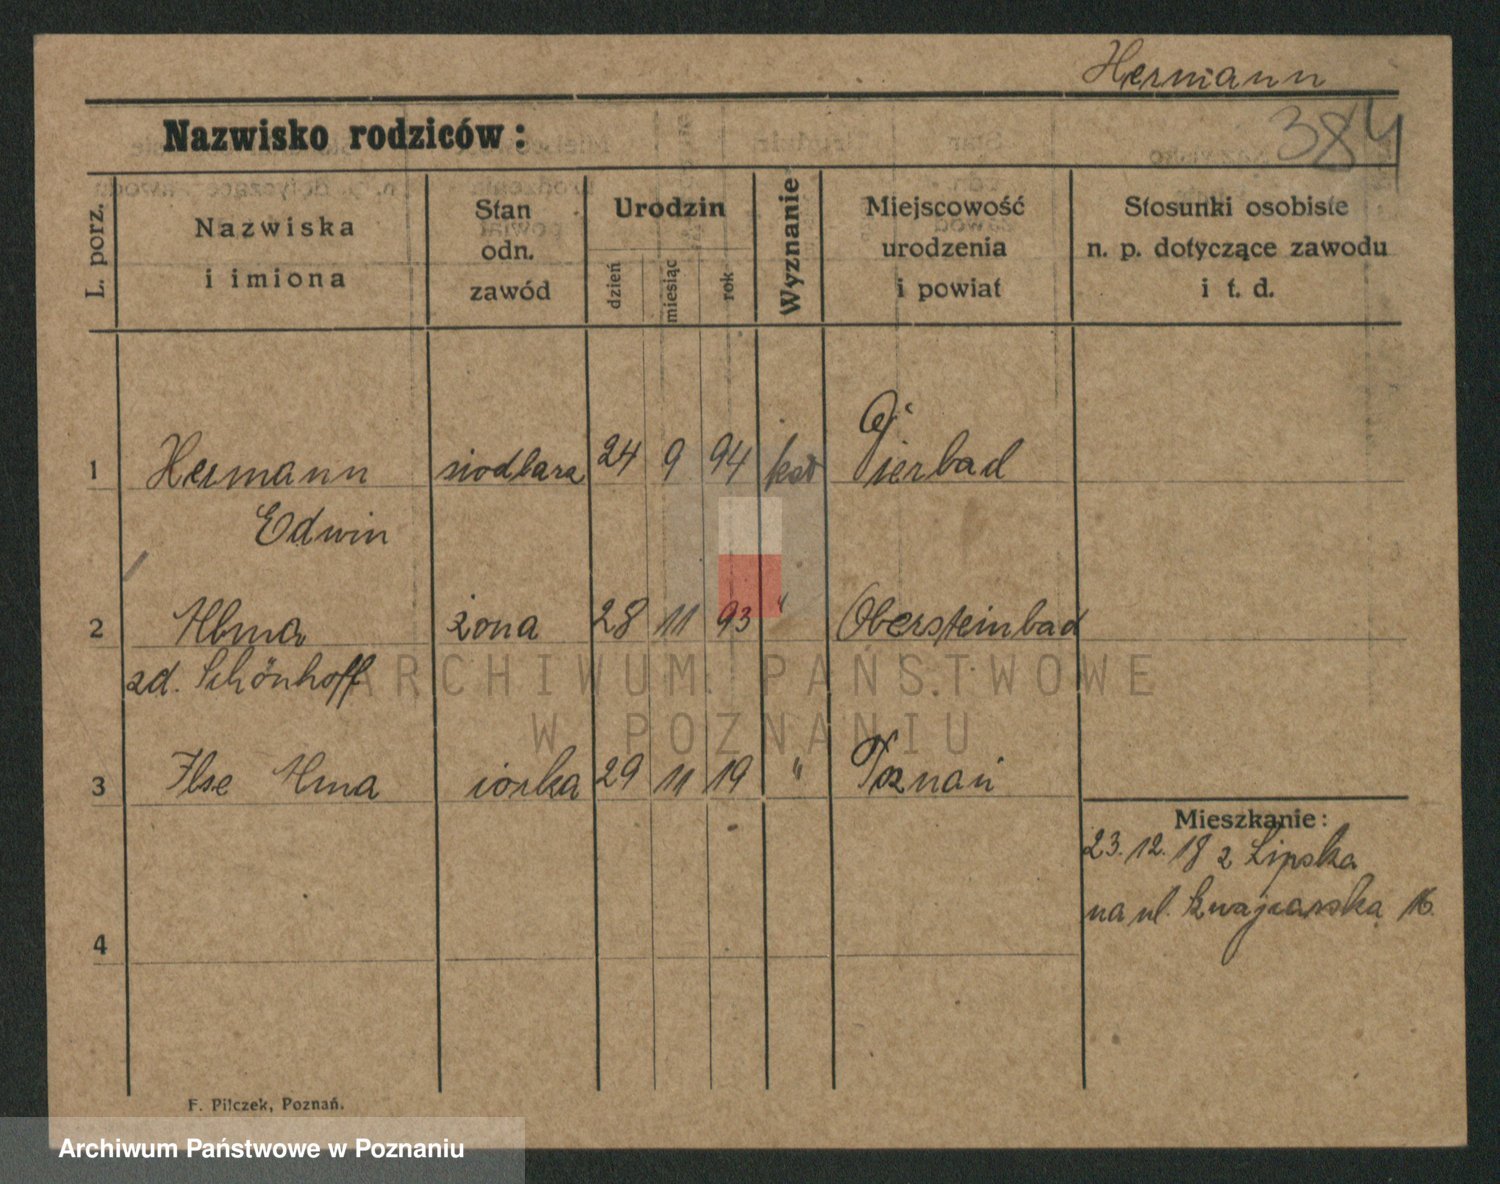 Hermann
384
Nazwisko rodziców:
L. porz.
Nazwiska
i imiona
Stan
odn.
zawód
Urodzin
dzień
miesiąc
rok
Wyznanie
Miejscowość
urodzenia
i powiat
Stosunki osobiste
n. p. dotyczące zawodu
i t. d.
1 Hermann siodlarz 24 9 94 kat Pierbad
Edwin
2 Alma żona 28 11 93 " Obersteinbad
zd. Schönhoff
ARCHIWUM PAŃSTWOWE
W POZNANIU
3 Ilse Alma córka 29 11 19 " Poznań
Mieszkanie:
23.12.18 z Lipska
na ul. Szwajcarska 16.
4
F. Pilczek, Poznań.
Archiwum Państwowe w Poznaniu